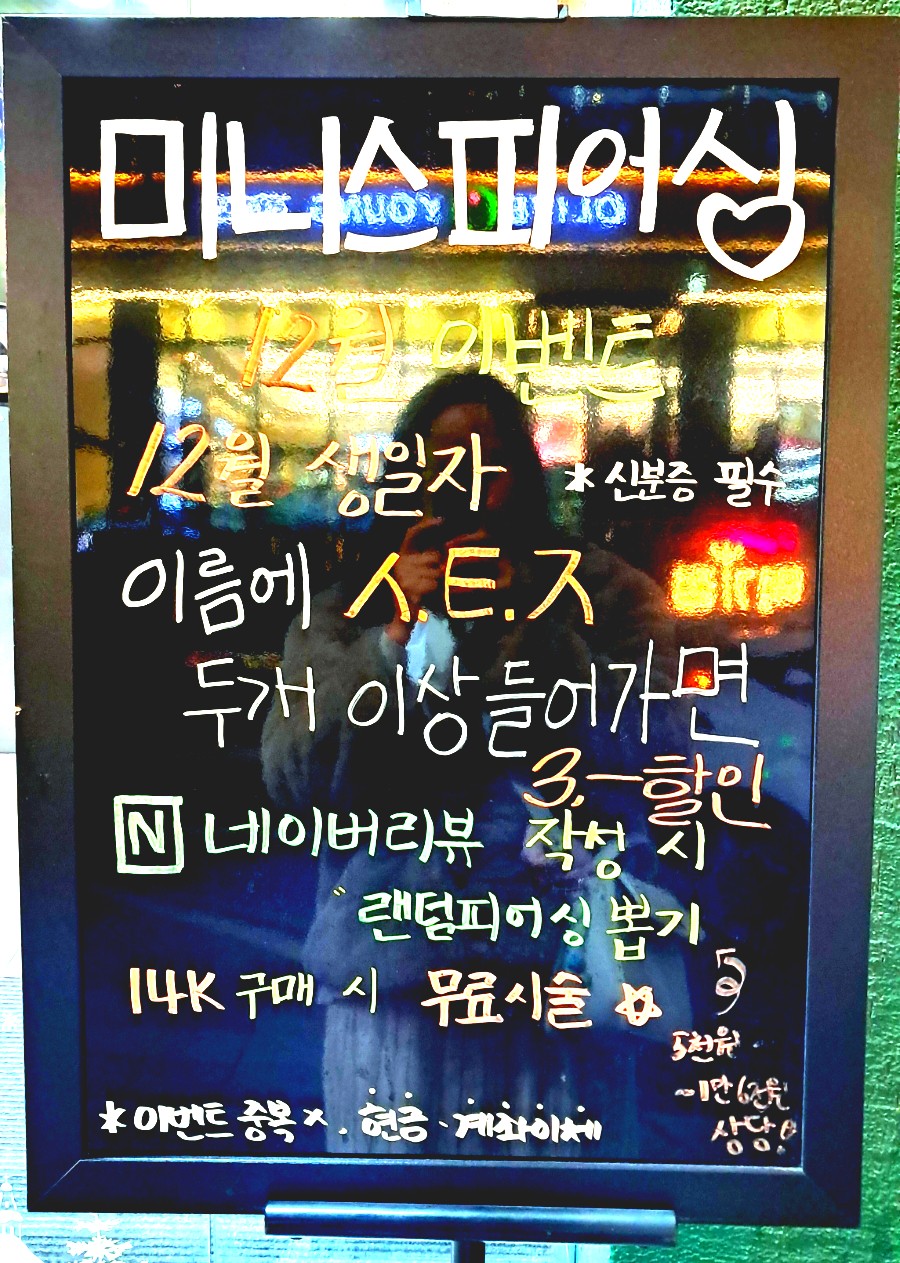 미니스피어싱
12월 이벤트
12월 생일자 *신분증 필수
이름에 ㅅ.ㅌ.ㅈ
두개 이상 들어가면
3.-할인
N 네이버리뷰 작성 시
랜덤피어싱 뽑기
14K 구매 시 무료시술
5천원
~1만6천원
상당!
*이벤트 중복 x. 현금·계좌이체